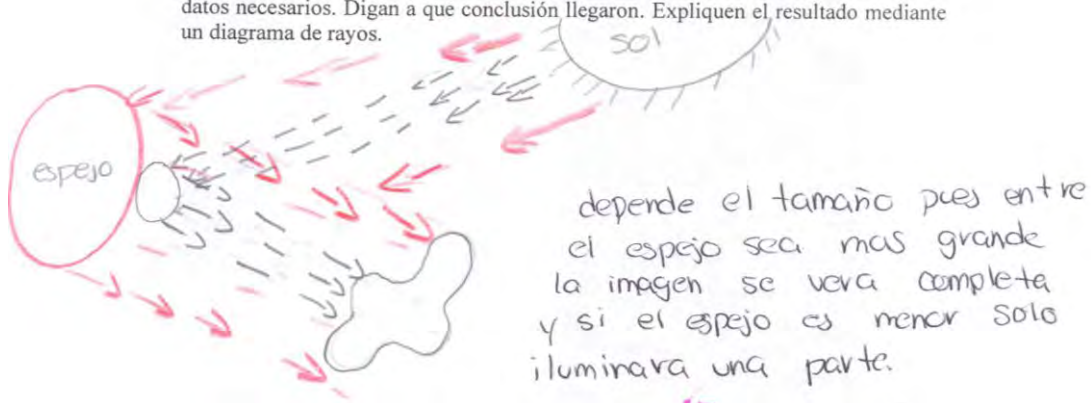 datos necesarios. Digan a que conclusión llegaron. Expliquen el resultado mediante
un diagrama de rayos.
sol
espejo
depende el tamaño pues entre
el espejo sea mas grande
la imagen se vera completa
y si el espejo es menor solo
iluminara una parte.